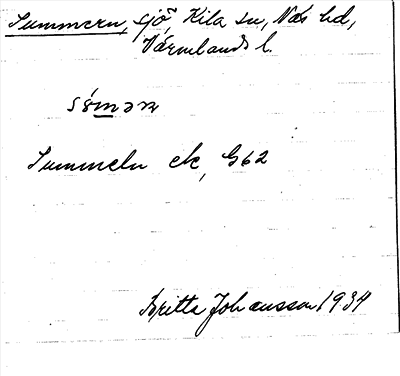 Summern, sjö, Kila sn, Näs hd,
Värmlands l.
sömər
Summeln ek, G62
Britta Johansson 1934